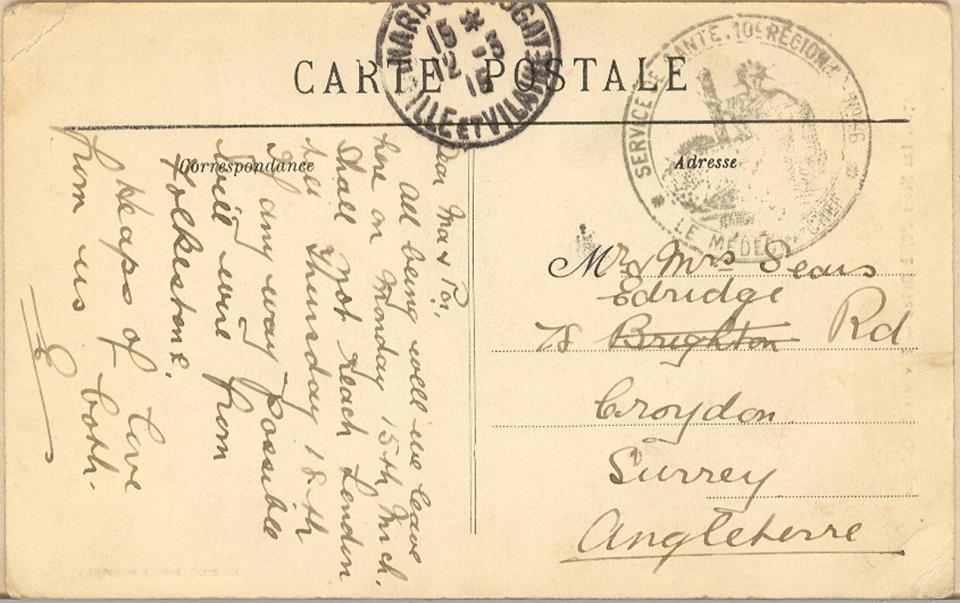 CARTE POSTALE
15 - 3
12 15
ILLE ET VILAINE
SERVICE DE SANTE. 10E REGION
LE MEDECIN CHEF
Correspondance
Adresse
Dear Ma & Pa,
All being well we leave
here on Monday 15th, Mich.
Shall not reach London
till Thursday 18th
If any way possible
will wire from
Folkestone.
Heaps of love
from us both.
E
Mr & Mrs Sears
Edridge
78 Brighton Rd
Croydon
Surrey
Angleterre